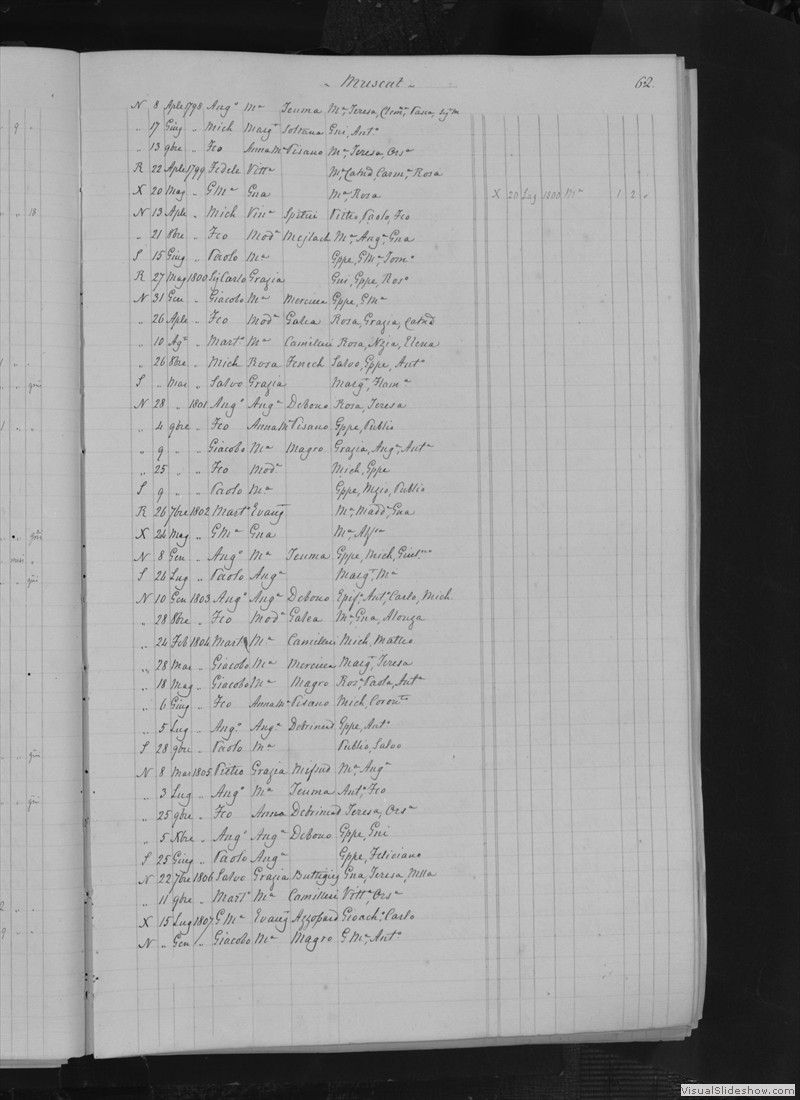 Muscat
62.
N 8 Aple 1798 Angº Mª Teuma Mª, Teresa,
„ 17 Giug „ Mich Margᵗ Gni, Antº
„ 13 9bre „ Fco Anna Mª Pisano Mª, Teresa, Orsª
R 22 Aple 1799 Fedele Vittª Mª Catnd, Carmª, Rosa
X 20 Mag „ GMª Gna Mª, Rosa X 20 Lug 1800 Mª 1 2 „
N 13 Aple „ Mich Vinª Spiteri Pietro, Paolo, Fco
„ 21 8bre „ Fco Modª Mejlach Mª, Angª, Gna
S 15 Giug „ Paolo Mª Gppe, GMª, Tomº
R 27 Mag 1800 Carlo Grazia Gni, Gppe, Rosº
N 31 Gen „ Giacobo Mª Mercieca Gppe, GMª
„ 26 Aple „ Fco Modª Galea Rosa, Grazia, Catnd
„ 10 Agº „ Martº Mª Camilleri Rosa, Nzia, Elena
„ 26 8bre „ Mich Rosa Fenech Salvo, Gppe, Antº
S „ Mar „ Salvo Grazia Margᵗ,
N 28 „ 1801 Angº Angª Debono Rosa, Teresa
„ 4 9bre „ Fco Anna Mª Pisano Gppe, Publio
„ 9 „ „ Giacobo Mª Magro Grazia, Angª, Antª
„ 25 „ „ Fco Modª Mich, Gppe
S 9 „ „ Paolo Mª Gppe, Nzio, Publio
R 26 7bre 1802 Martº Evangᵗ Mª, Maddª, Gna
X 24 Mag „ GMª Gna Mª,
N 8 Gen „ Angº Mª Teuma Gppe, Mich,
S 26 Lug „ Paolo Angª Margᵗ, Mª
N 10 Gen 1803 Angº Angª Debono Epifª, Antº, Carlo, Mich.
„ 28 8bre „ Fco Modª Galea Mª, Gna, Alonza
„ 24 Feb 1804 Martº Mª Camilleri Mich, Matteo
„ 28 Mar „ Giacobo Mª Mercieca Margᵗ, Teresa
„ 18 Mag „ Giacobo Mª Magro Rosª, Paola, Antª
„ 6 Giug „ Fco Anna Mª Pisano Mich,
„ 5 Lug „ Angº Angª Debrincat Gppe, Antº
S 28 9bre „ Paolo Mª Publio, Salvo
N 8 Mar 1805 Pietro Grazia Mifsud Mª, Angª
„ 3 Lug „ Angº Mª Teuma Antº, Fco
„ 25 9bre „ Fco Anna Debrincat Teresa, Orsª
„ 5 Xbre „ Angº Angª Debono Gppe, Gni
S 25 Giug „ Paolo Angª Gppe, Feliciano
N 22 7bre 1806 Salvo Grazia Buttigieg Gna, Teresa,
„ 11 9bre „ Martº Mª Camilleri Vittª, Orsª
X 15 Lug 1807 GMª Evangᵗ Azzopard Gioachº, Carlo
N „ Gen „ Giacobo Mª Magro GMª, Antº
VisualSlideshow.com